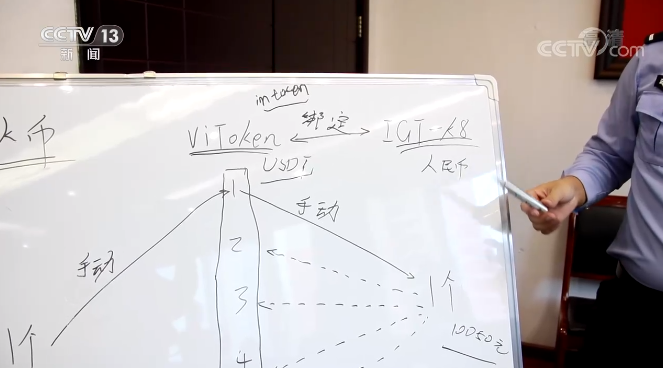 CCTV 13
新闻
CCTV.com
高清
imtoken
K币
ViToken
绑定
IGT-K8
USDT
人民币
1
手动
2
手动
3
1个
1个
10050元
4